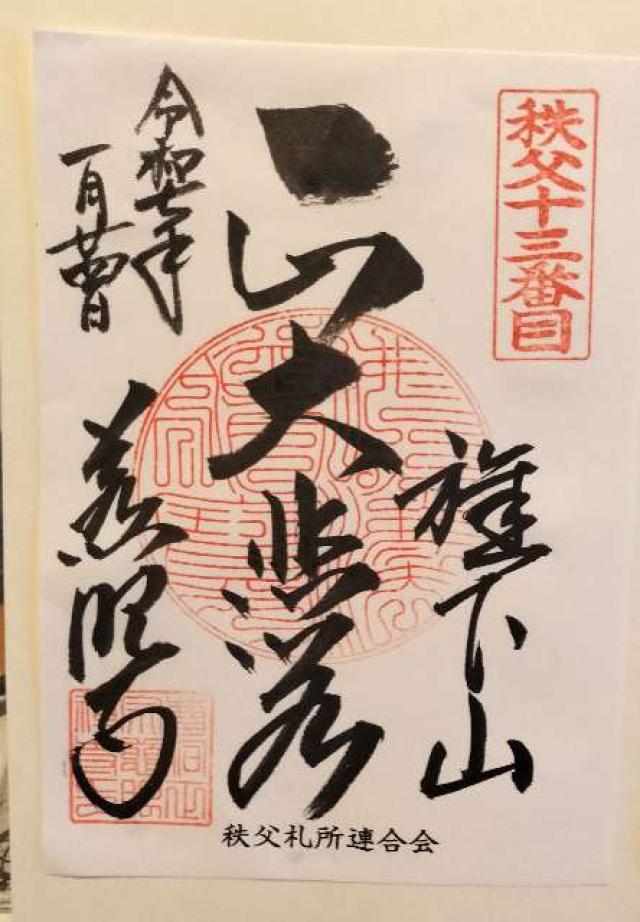 秩父十三番目
旗下山
大悲殿
慈眼寺
令和七年
一月
秩父札所連合会